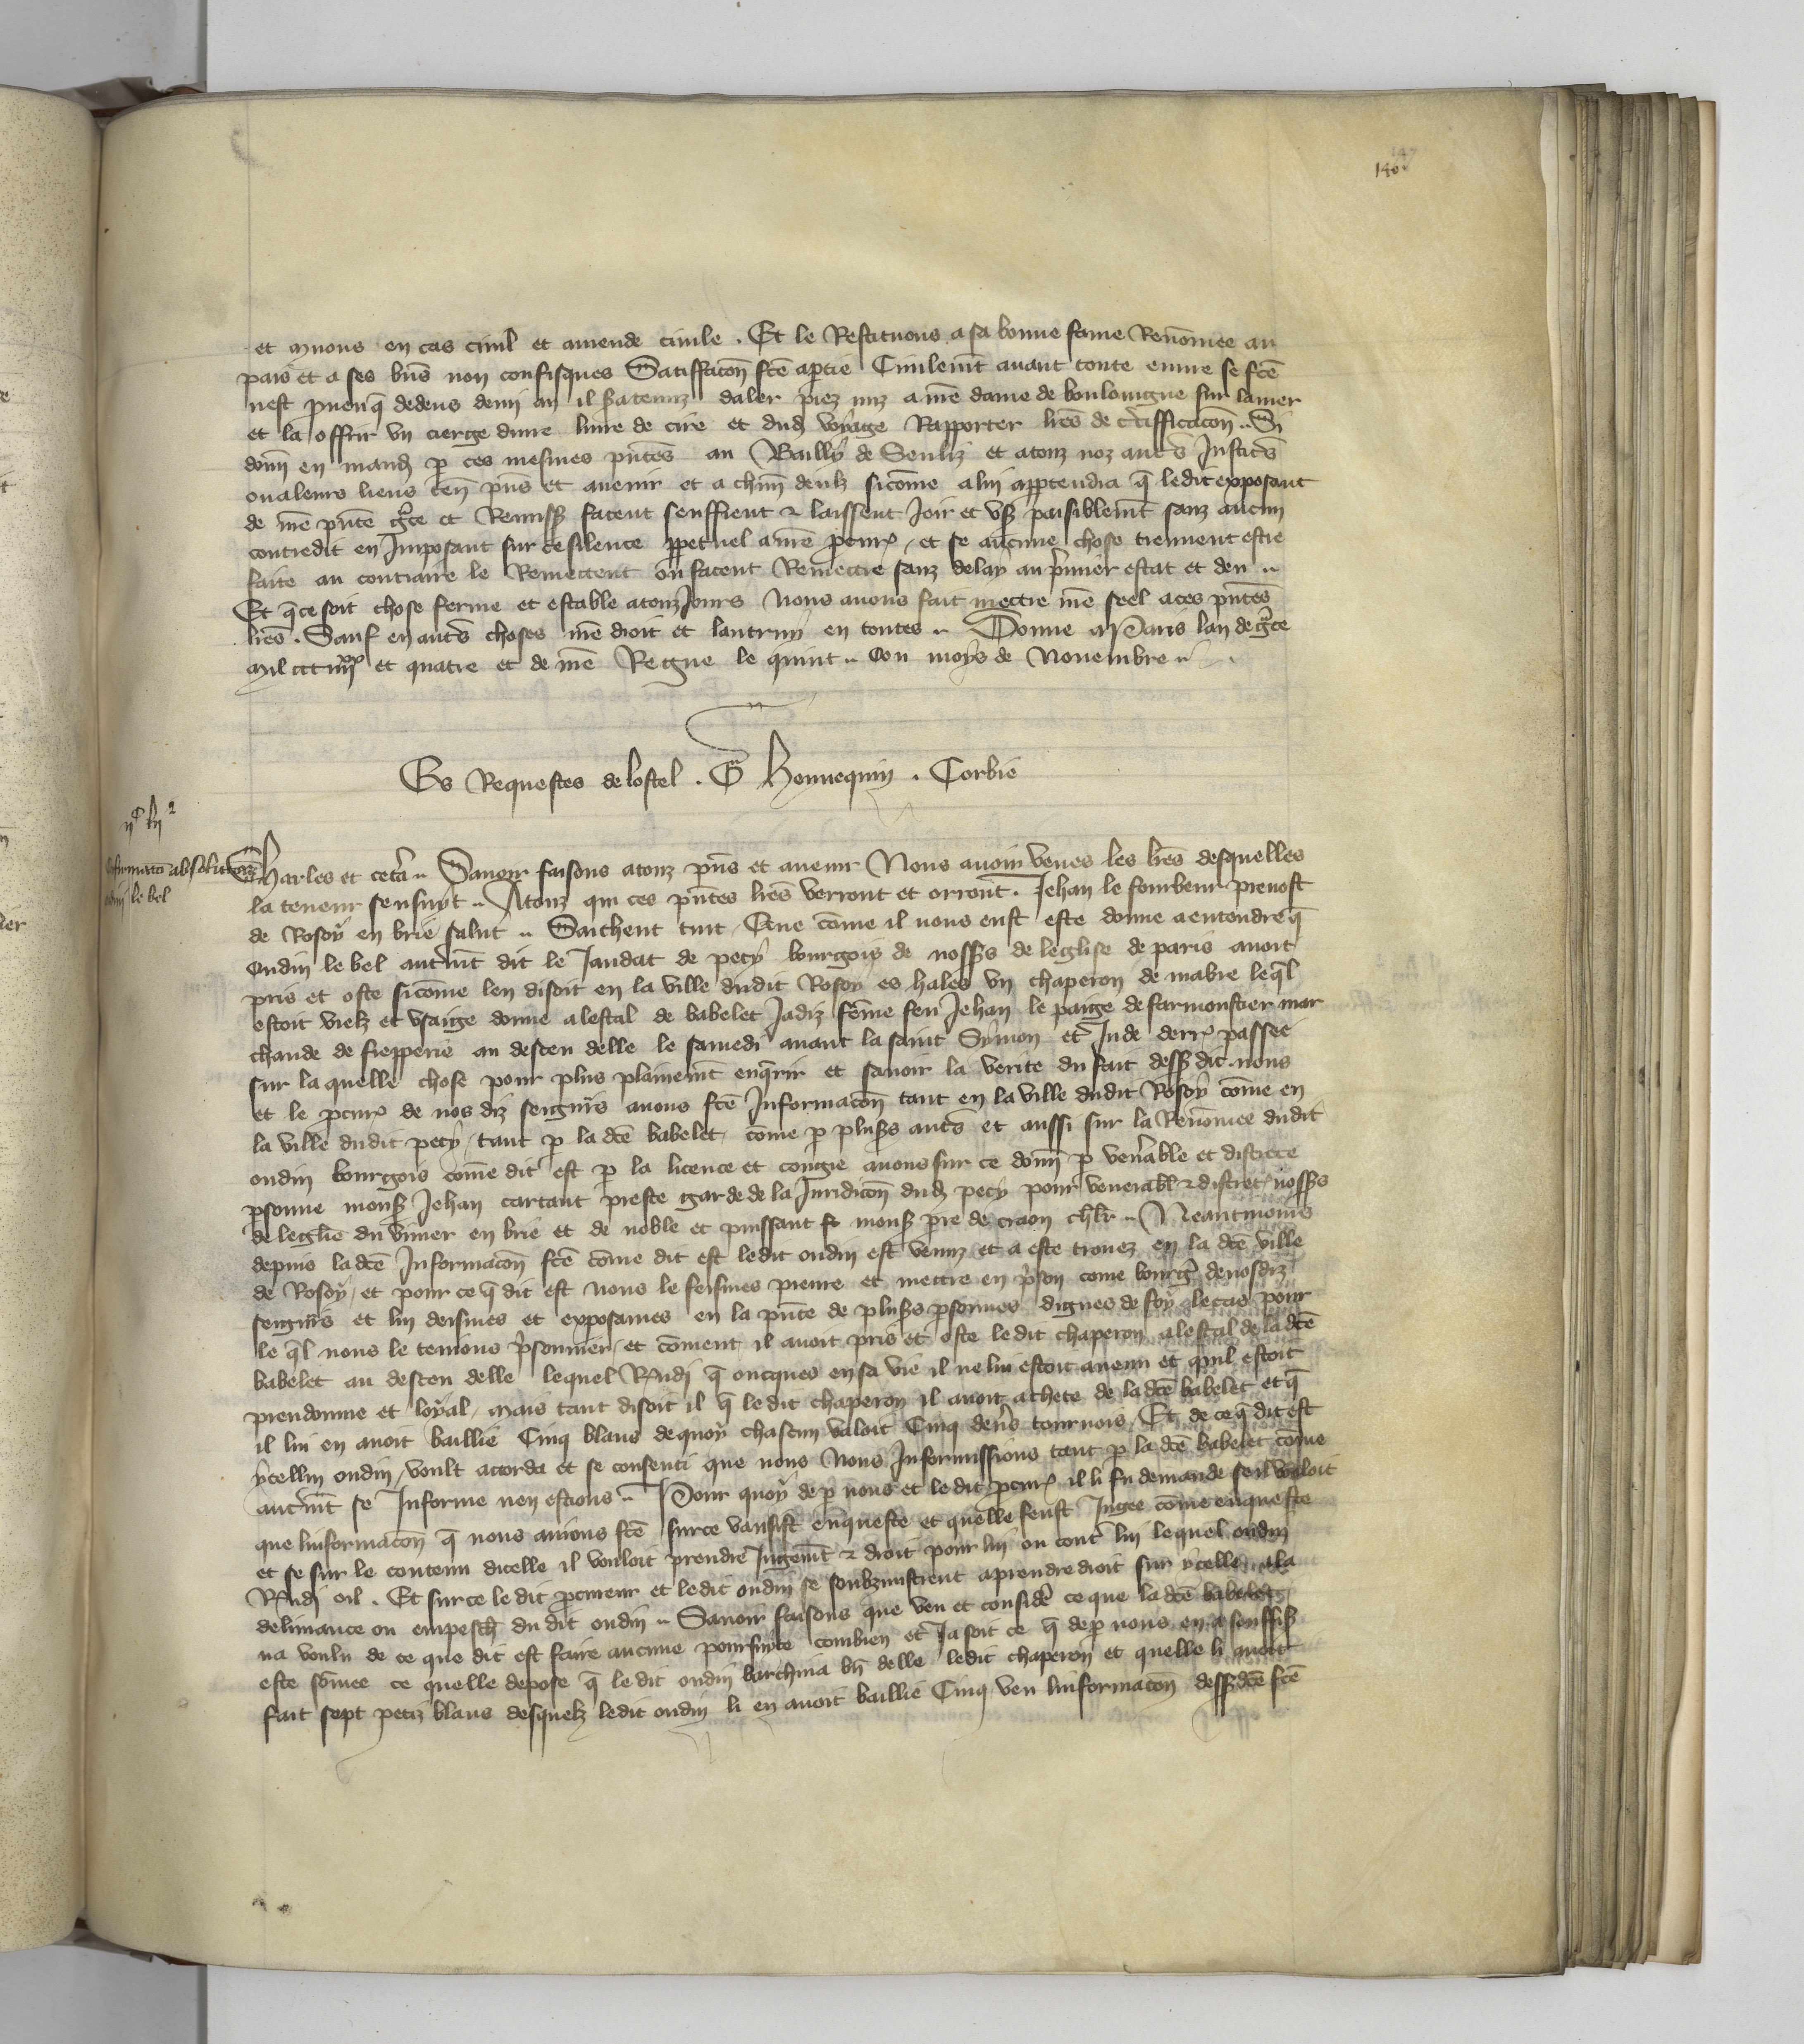 140
et muons en cas civil et amende civile . Et le Restituons a sa bonne fame Renōmee au
pais et a ses biēs non confisques Satiffacōn fcē a ptie Civilemt avant toute euvre se fcē
nest pveu q̄ dedens demi an il sera tenuz daler piez nuz a nrē dame de boulongne sur la mer
et la offrir vn cierge dune livre de cire et dud voyage Rapporter lrēs de certifficacōn .. Si
donn en mand p ces mesmes pntēs au Bailly de Senliz et a touz noz autrēs Justicrs
ou a leurs lieux ten pñs et avenir et a chūn deulz sicōme a lui appartendra q̄ le dit exposant
de nrē pñte grce et Remiss facent seuffrent & laissent Joir et vser paisiblemt sanz aucun
contredit en Imposant sur ce silence ppetuel a nrē pcur , et se aucune chose treuvent estre
faite au contraire le Remettent ou facent Remettre sanz delay au pmier estat et deu ..
Et q̄ ce soit chose ferme et estable a touz Jours Nous avons fait mettre nrē seel a ces pntēs
lrēs . Sauf en autrs choses nrē droit et lautruy en toutes .. Donne a Paris lan de grce
mil ccc iiijxx et quatre et de nrē Regne le quint .. Ou moys de Novembre ..
Es Requestes de lostel . G Hennequin . Corbie
ijc lxij
Confirmatō absolutōis
odin le bel
Charles et cetera .. Savoir faisons a touz pñs et avenir Nous avoir veues les lrēs desquelles
la teneur sensuyt .. A touz qui ces pntēs lrēs verront et orront . Jehan le fourbeur prevost
de Rosoy en brie salut .. Saichent tuit Que cōme il nous eust este donne a entendre q̄
Oudin le bel autremt dit le Jaudat de pecy bourgois de nosss de leglise de paris avoit
pris et oste sicōme len disoit en la ville dudit Rosoy es hales vn chaperon de mabre leql
estoit vielz et vsaige donne a lestal de babelet Jadiz fēme feu Jehan le paige de farmoustier mar
chande de freperie au desceu delle le samedi avant la saint Symon et Jude derr passee
sur la quelle chose pour plus plainemt enqrir et savoir la verite du fait dessdit nous
et le pcur de nos diz seigneurs avons fcē Informacōn tant en la ville dudit Rosoy cōme en
la ville dudit pecy , tant p la dcē babelet cōme p plusrs autrs et aussi sur la Renōmee dudit
oudin bourgois cōme dit est p la licence et congie avons sur ce donn p venerable et discrete
psonne monss Jehan cartaut prestre garde de la Juridicōn dud pecy pour venerabl & discret nosss
de leglise du vivier en brie et de noble et puissant monss pre de craon chlr .. Neantmoins
depuis la dcē Informacōn fcē cōme dit est ledit oudin est venuz et a este trouvez en la dcē ville
de Rosoy , et pour ce q̄ dit est nous le feismes prenre et mettre en pson come bourg de nosdiz
seigneurs et lui deismes et exposames en la pñte de plusrs psonnes dignes de foy le cas pour
le ql nous le tenions psonnier et cōment il avoit pris et oste le dit chaperon a lestal de la dcē
babelet au desceu delle lequel Rndi q̄ oncques en sa vie il ne lui estoit avenu et quil estoit
preudomme et loyal , mais tant disoit il q̄ le dit chaperon il avoit achete de la dcē babelet et q̄
il lui en avoit baillie Cinq blans de quoy chascun valoit Cinq deners tournois , Et de ce q̄ dit est
ycellui oudin , voult accorda et se consenti que nous Nous Informissions tant p la dcē babelet cōme
autremt se Informe nen estions .. Pour quoy de p nous et ledit pcur il li fu demande se il vouloit
que linformacōn q̄ nous avions fcē sur ce vausist enqueste et quelle feust Jugee cōme enqueste
et se sur le contenu dicelle il vouloit prendre Jugemt & droit pour lui ou contre lui lequel oudin
Rndi oil . Et sur ce le dit pcureur et ledit oudin se soubzmistrent a prendre droit sur ycelle a la
delivrance ou empesch du dit oudin .. Savoir faisons que veu et considere ce que la dcē babelet
na voulu de ce que dit est faire aucune poursuyte combien et Ja soit ce q̄ de p nous en a souffis
este sōmee ce quelle depose q̄ le dit oudin barchina bn delle ledit chaperon et quelle li avoit
fait sept petiz blans desquelz ledit oudin li en avoit baillie Cinq veu linformacōn dessdcē fcē